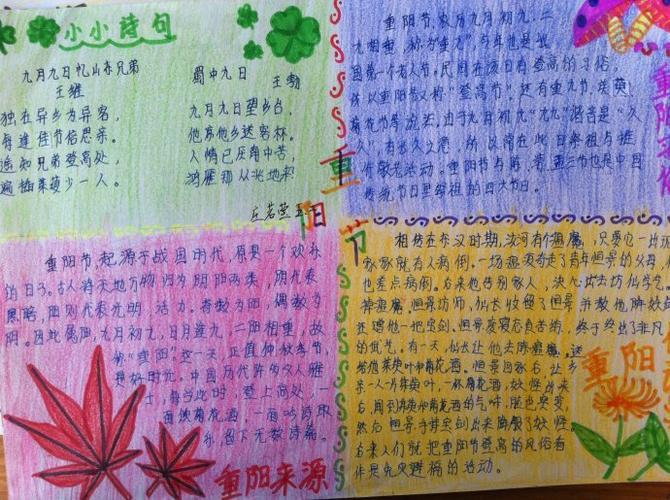 小小诗句
九月九日忆山东兄弟
王维
独在异乡为异客，
每逢佳节倍思亲。
遥知兄弟登高处，
遍插茱萸少一人。
蜀中九日
王勃
九月九日望乡台，
他席他乡送客杯。
人情已厌南中苦，
鸿雁那从北地来
重阳节，农历九月初九，二
九相重，称为"重九"，
国第一个老人节。民间在该日有登高的习俗，
所以重阳节又称"登高节"。还有重九节、茱萸、
菊花节等说法，由于九月初九"九九"谐音是"久
久"，有长久之意，所以常在此日祭祖与推
行敬老活动。重阳节与除、清、盂三节也是中国
传统节日里祭祖的四大节日。
重阳节
重阳节，起源于战国时代，原是一个欢乐
的日子。古人将天地万物归为阴阳两类，阴代表
黑暗，阳则代表光明、活力。奇数为阳，偶数为
阴。因此属阳，九月初九，日月逢九，二阳相重，故
称"重阳"这一天，正值仲秋季节，
是好时光。中国历代许多文人雅
士，每当此时，登上高处，一
面饮菊花酒，一面吟诗取
乐，留下无数诗篇。
重阳来源
相传在东汉时期，汝河有个瘟魔，只要它一出现
家家就有人病倒。一场瘟疫夺走了青年恒景的父母，
也差点病倒。后来他告别家人，决心出去访仙学艺
仙长收留了恒景并教他降妖
还赠他一把宝剑。恒景废寝忘食苦练，终于练出了非凡
的武艺。有一天，仙长让他去除瘟魔，送
给他茱萸叶和菊花酒。恒景回家后，让乡
亲一人一片茱萸叶，一杯菊花酒，妖怪出来
后，闻到茱萸和菊花酒的气味，脸色突变，
然后恒景手持宝剑出来降服了妖怪，
后来人们就把重阳节登高的风俗看
作是免灾避祸的活动。
重阳